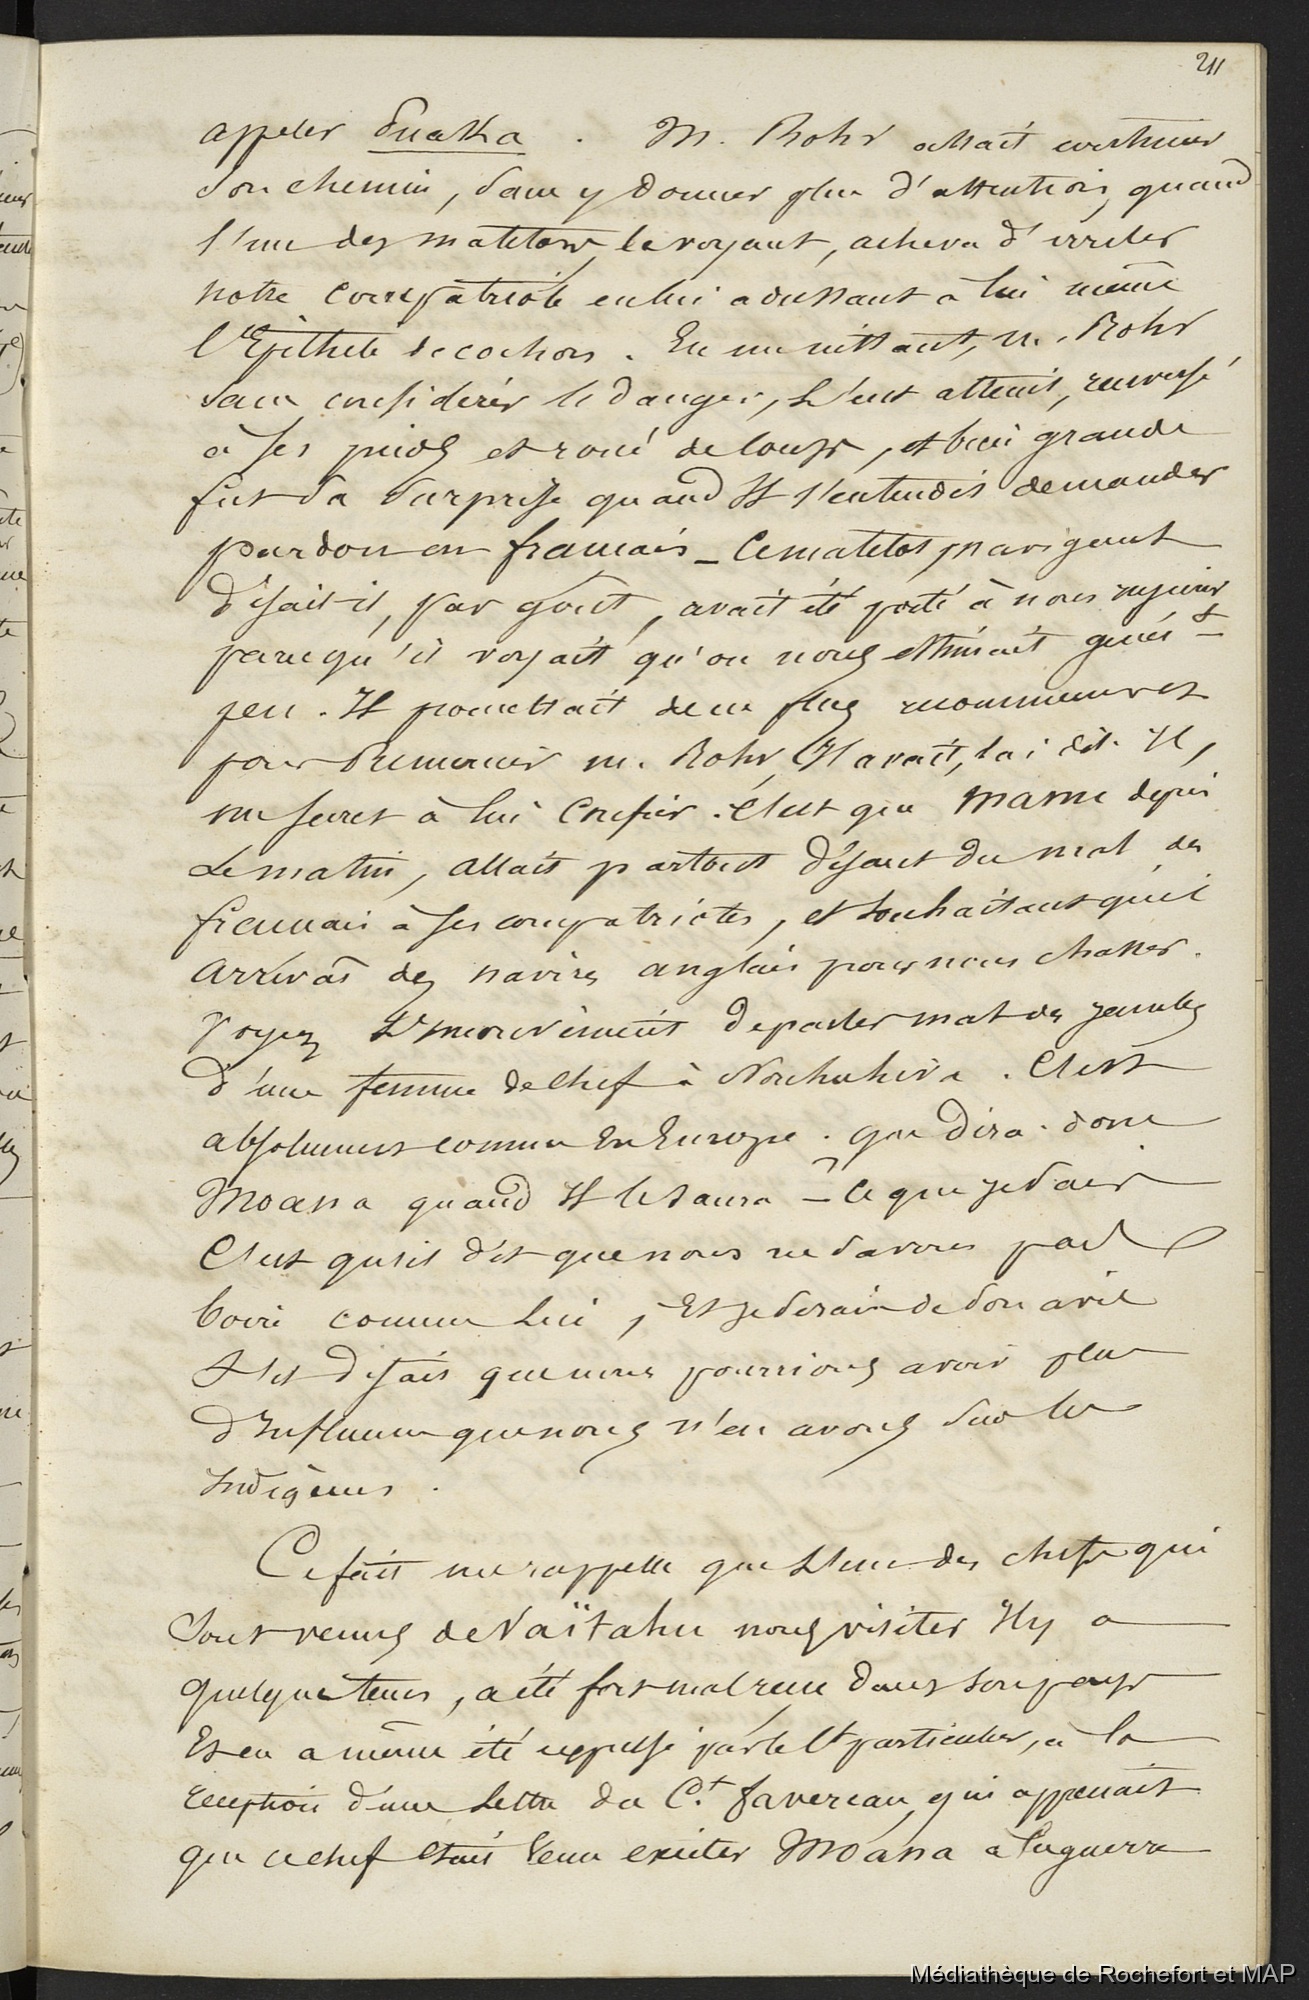 211
appeler Puakka . M. Rohr allait continuer
son chemin, sans y donner plus d'attention, quand
l'un des matelots, le voyant, acheva d'irriter
notre compatriote en lui adressant à lui même
l'Epithete de cochon. En un instant, M. Rohr
sans considérer le danger, L'eut atteint, renversé
à ses pieds et roué de coups, et bien grande
fut sa surprise quand Il s'entendit demander
pardon en français _ Ce matelot, navigant
disait-il, par goût, avait été porté à nous injurier
parcequ'il voyait qu'on nous estimait
peu. Il promettait de ne plus recommencer et
pour Remercier M. Rohr, Il avait, lui dit-Il,
un secret à lui Confier. C'est que Mame depuis
Le matin, allait partout disant du mal des
français à ses compatriotes, et souhaitant qu'il
arrivât des navires anglais pour nous chasser.
Voyez L'inconvénient de parler mal des jambes
d'une femme de Chef à Nouhuhiva. C'est
absolument comme En Europe. que dira-donc
Moana quand Il le saura _ Ce que je sais
C'est qu'il dit que nous ne savons pas
boire comme Lui, Et je serais de son avis
S'il disait que nous pourrions avoir plus
d'Influence que nous n'en avons sur les
Indigènes .
Ce fait me rappelle que L'un des chefs qui
sont venus de Vaïtahu nous visiter Il y a
quelque tems, a été fort mal reçu dans son pays
Et en a même été expulsé par le Ct particulier, à la
réception d'une Lettre du Ct. Favereau, qui apprenait
que ce chef était Venu exciter Moana à la guerre
Médiathèque de Rochefort et MAP